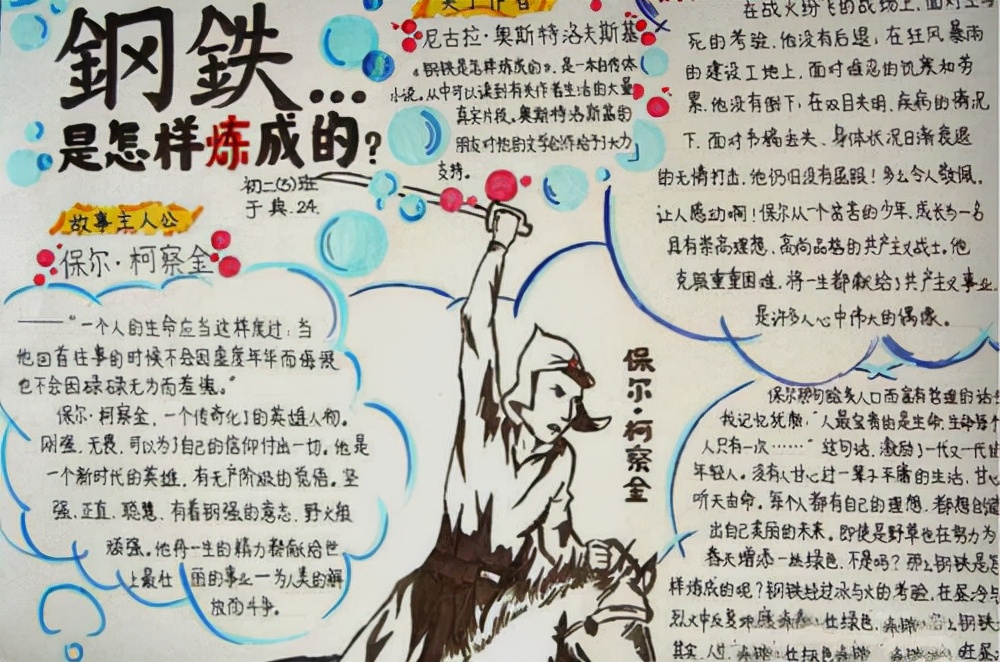 鋼鉄...
是怎样炼成的?
初二(5)班
于典.24.
关于作者
尼古拉·奥斯特洛夫斯基
《钢铁是怎样炼成的》,是一本自传体
小说。从中可以读到有关作者生活的大量
真实片段。奥斯特洛斯基的
朋友对他的文学创作给予大力
支持。
故事主人公
保尔·柯察金
——"一个人的生命应当这样度过:当
他回首往事的时候不会因虚度年华而悔恨
也不会因碌碌无为而羞愧。"
保尔·柯察金,一个传奇化了的英雄人物。
刚强、无畏、可以为了自己的信仰付出一切。他是
一个新时代的英雄,有无产阶级的觉悟。坚
强、正直、聪慧、有着钢强的意志、野火般
顽强。他将一生的精力都献给世
上最壮丽的事业—为人类的解
放而斗争。
保尔·柯察金
在战火纷飞的战场上,面对生与
死的考验,他没有后退,在狂风暴雨
的建设工地上,面对难忍的饥寒和劳
累,他没有倒下,在双目失明、疾病的情况
下,面对书稿丢失、身体状况日渐衰退
的无情打击,他仍旧没有屈服!多么令人敬佩。
让人感动啊!保尔从一个贫苦的少年,成长为一名
具有崇高理想、高尚品格的共产主义战士。他
克服重重困难,将一生都献给了共产主义事业,
是许多人心中伟大的偶像。
保尔那句脍炙人口而富有哲理的话
我记忆犹新:"人最宝贵的是生命,生命每个
人只有一次……"这句话,激励了一代又一代
年轻人。没有人甘心过一辈子平庸的生活,甘心
听天由命。每个人都有自己的理想,都想创造
出自己美丽的未来。即使是野草也在努力为
春天增添一丝绿色,不是吗?那么钢铁是怎
样炼成的呢?钢铁经过冰与火的考验,在寒冷与
烈火中反复
钢铁
其实,人